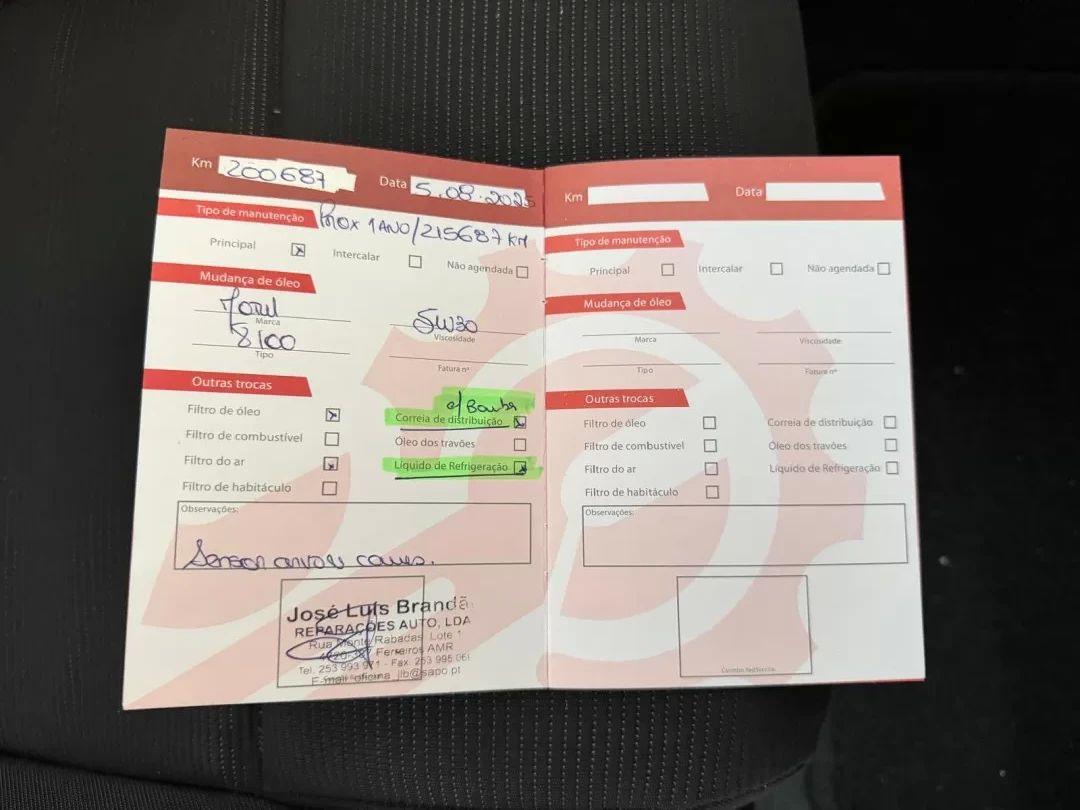 Km 200687 Data 5.08.2025
Tipo de manutenção Prox 1 ANO/215687 KM
Principal
Intercalar
Não agendada
Mudança de óleo
Motul
Marca
5W30
Viscosidade
8100
Tipo
Fatura nº
Outras trocas
c/ Bomba
Filtro de óleo
Correia de distribuição
Filtro de combustível
Óleo dos travões
Filtro do ar
Líquido de Refrigeração
Filtro de habitáculo
Observações:
Sensor arvore cames.
José Luís Brandã
REPARAÇÕES AUTO, LDA
Rua Monte Rabadas Lote 1
Ferreiros AMR
Tel. 253 993 971 - Fax. 253 995 061
E-mail oficina_jlb@sapo.pt
Km Data
Tipo de manutenção
Principal
Intercalar
Não agendada
Mudança de óleo
Marca
Viscosidade
Tipo
Fatura nº
Outras trocas
Filtro de óleo
Correia de distribuição
Filtro de combustível
Óleo dos travões
Filtro do ar
Líquido de Refrigeração
Filtro de habitáculo
Observações: